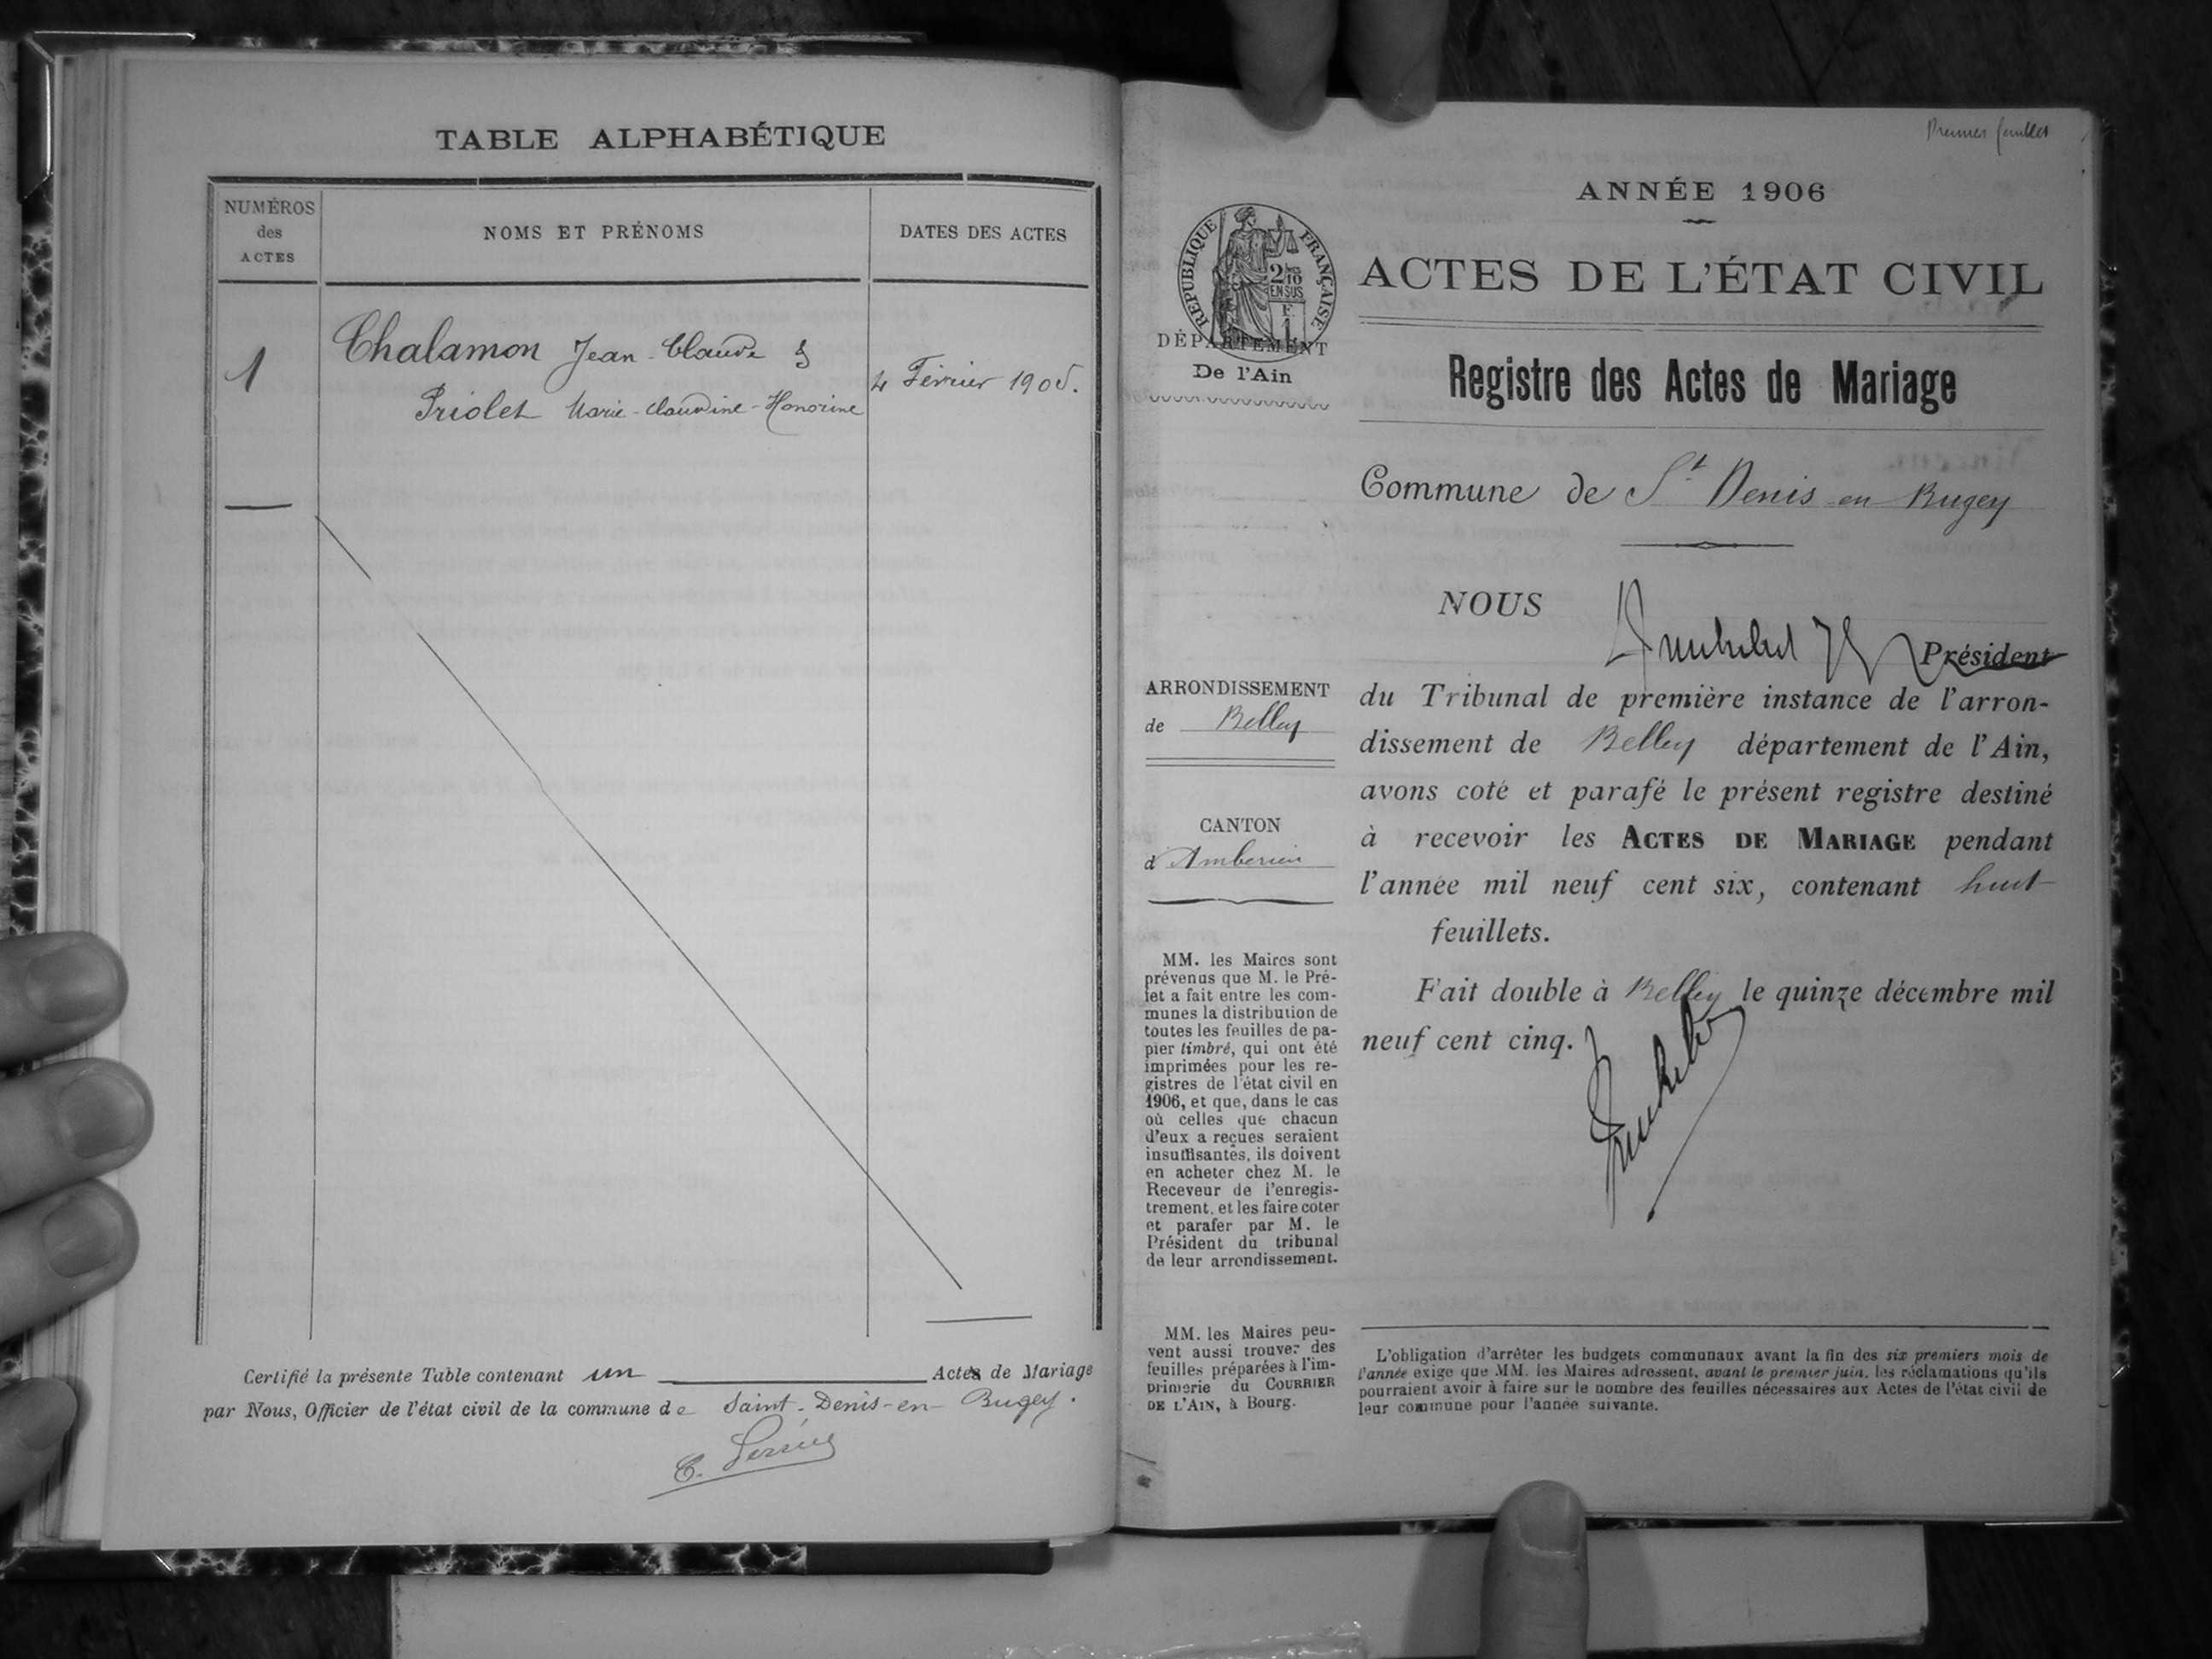 TABLE ALPHABÉTIQUE
NUMÉROS
des
ACTES
NOMS ET PRÉNOMS
DATES DES ACTES
1
Chalamon Jean-Claude &
Priolet Marie-Claudine-Honorine
4 Février 1905.
Certifié la présente Table contenant un Actes de Mariage
par Nous, Officier de l'état civil de la commune de Saint-Denis-en-Bugey.
Premier feuillet
ANNÉE 1906
RÉPUBLIQUE FRANÇAISE
2/10
EN SUS
F.
1
DÉPARTEMENT
De l'Ain
ACTES DE L'ÉTAT CIVIL
Registre des Actes de Mariage
Commune de St Denis en Bugey
NOUS
Président
ARRONDISSEMENT
de Belley
CANTON
d'Ambérieu
du Tribunal de première instance de l'arron-
dissement de Belley département de l'Ain,
avons coté et parafé le présent registre destiné
à recevoir les ACTES DE MARIAGE pendant
l'année mil neuf cent six, contenant huit
feuillets.
Fait double à Belley le quinze décembre mil
neuf cent cinq.
MM. les Maires sont
prévenus que M. le Pré-
fet a fait entre les com-
munes la distribution de
toutes les feuilles de pa-
pier timbré, qui ont été
imprimées pour les re-
gistres de l'état civil en
1906, et que, dans le cas
où celles que chacun
d'eux a reçues seraient
insuffisantes, ils doivent
en acheter chez M. le
Receveur de l'enregis-
trement, et les faire coter
et parafer par M. le
Président du tribunal
de leur arrondissement.
MM. les Maires peu-
vent aussi trouver des
feuilles préparées à l'im-
primerie du COURRIER
DE L'AIN, à Bourg.
L'obligation d'arrêter les budgets communaux avant la fin des six premiers mois de
l'année exige que MM. les Maires adressent, avant le premier juin, les réclamations qu'ils
pourraient avoir à faire sur le nombre des feuilles nécessaires aux Actes de l'état civil de
leur commune pour l'année suivante.